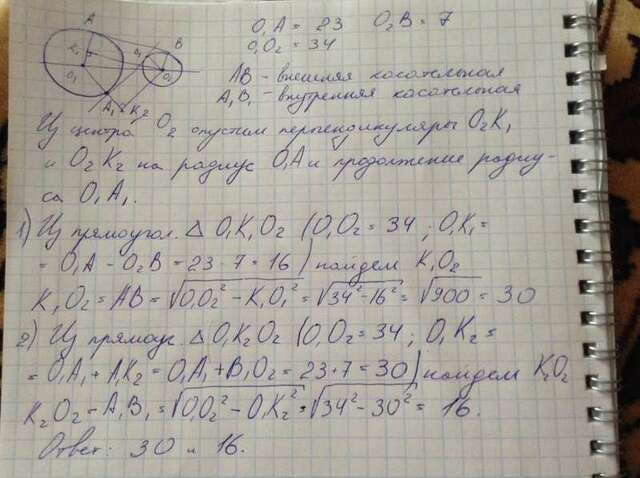 A
B
O₁
O₂
K₁
B₁
A₁
K₂
O₁A = 23 O₂B = 7
O₁O₂ = 34
AB - внешняя касательная
A₁B₁ - внутренняя касательная
Из центра O₂ опустим перпендикуляры O₂K₁
и O₂K₂ на радиус O₁A и продолжение радиу-
са O₁A₁.
1) Из прямоугол. △ O₁K₁O₂ (O₁O₂ = 34 ; O₁K₁ =
= O₁A - O₂B = 23 - 7 = 16) найдем K₁O₂
K₁O₂ = AB = √O₁O₂² - K₁O₁² = √34² - 16² = √900 = 30
2) Из прямоуг. △ O₁K₂O₂ (O₁O₂ = 34 ; O₁K₂ =
= O₁A₁ + A₁K₂ = O₁A₁ + B₁O₂ = 23 + 7 = 30) найдем K₂O₂
K₂O₂ = A₁B₁ = √O₁O₂² - O₁K₂² = √34² - 30² = 16.
Ответ: 30 и 16.